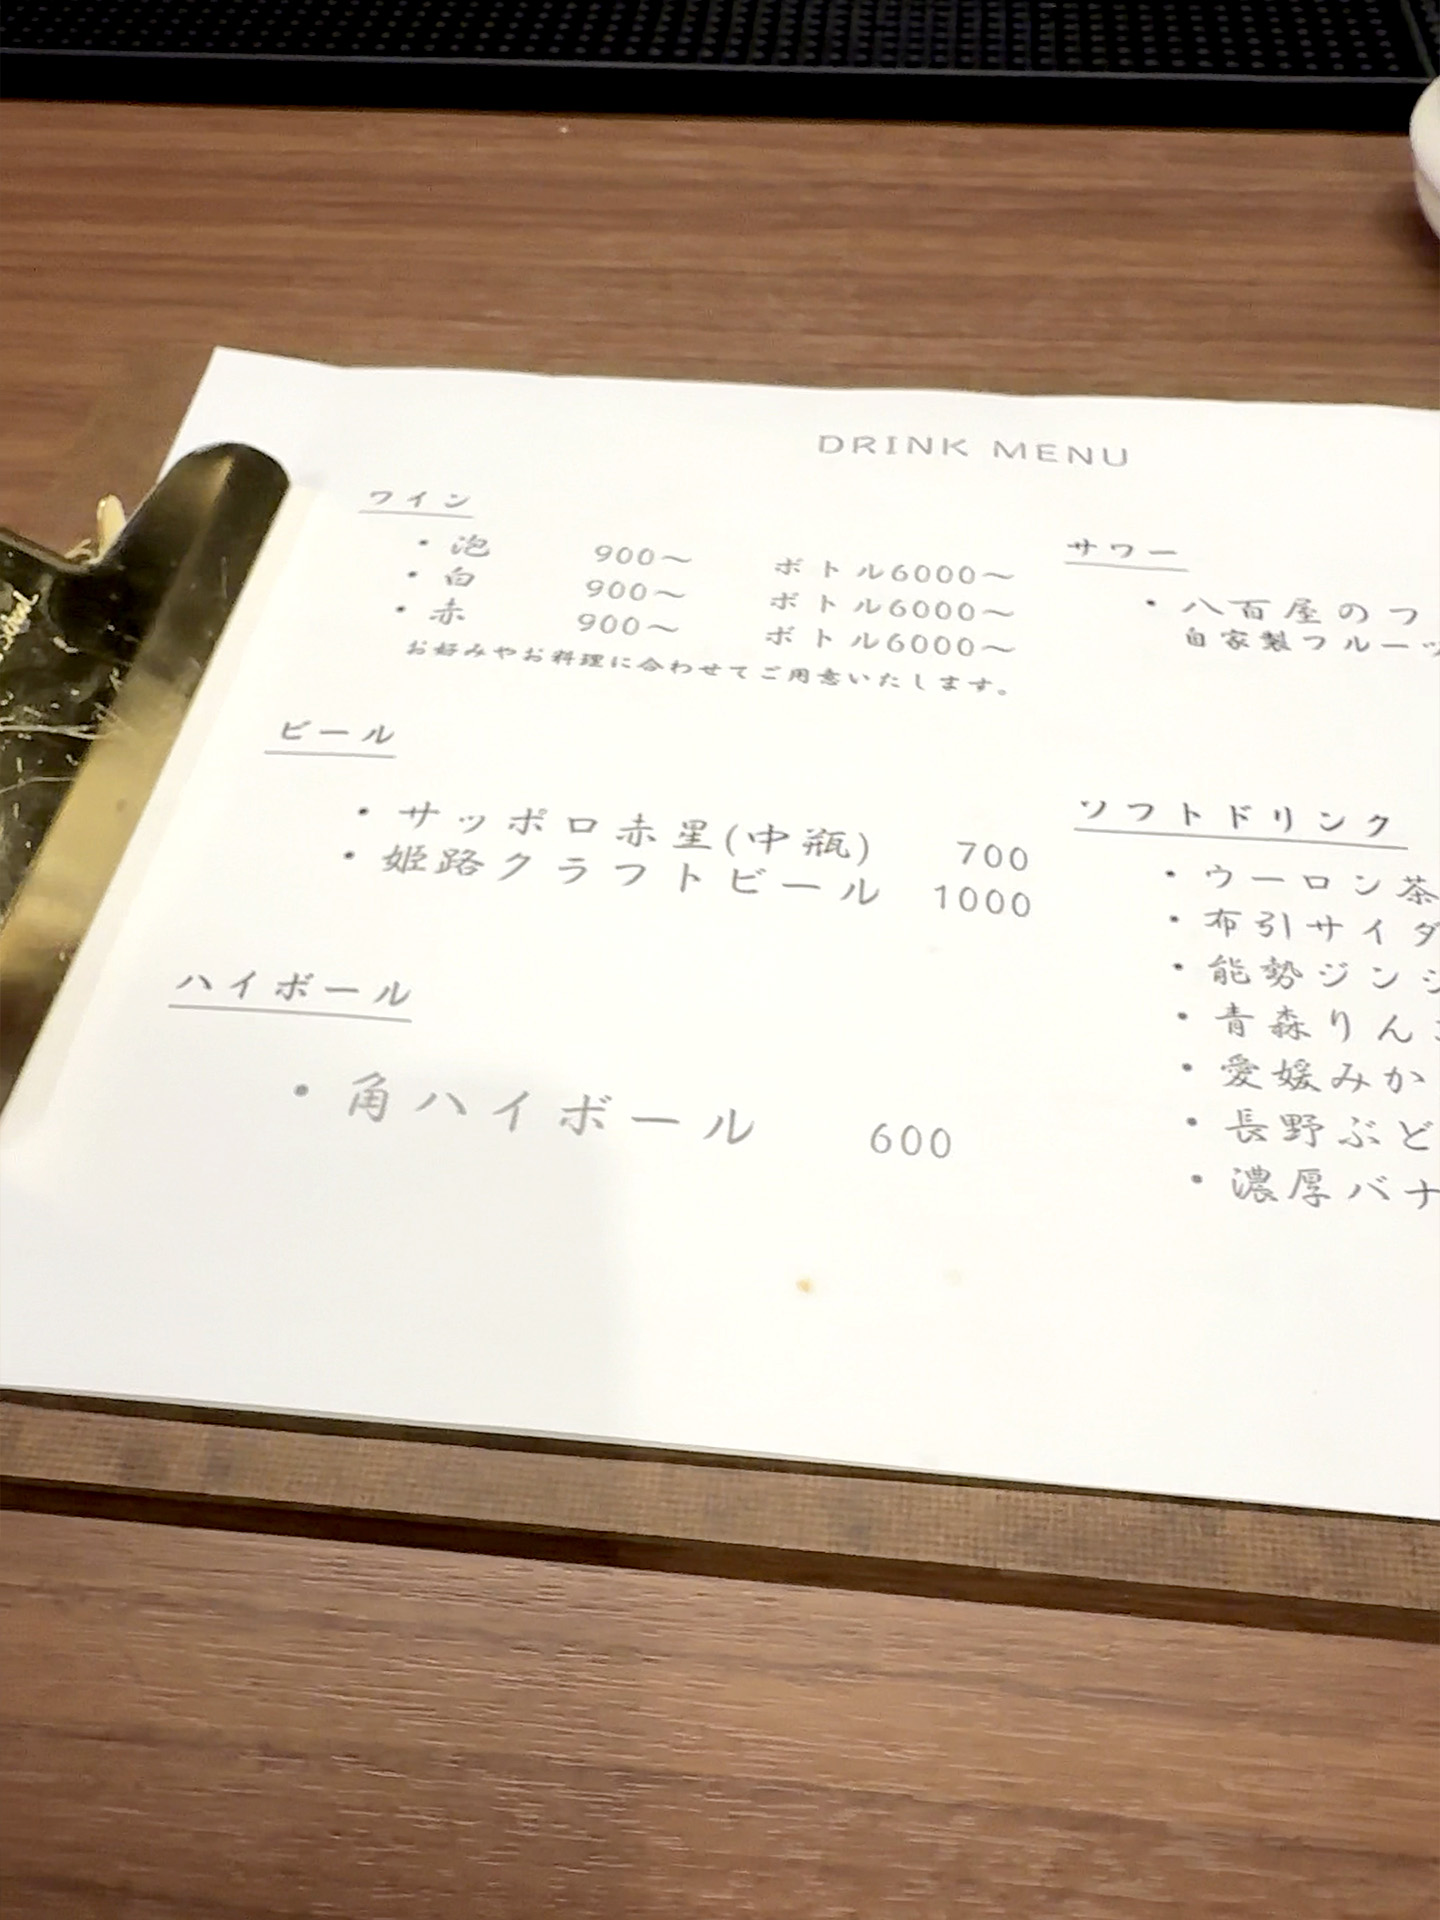 DRINK MENU
ワイン
・泡 900～ ボトル6000～
・白 900～ ボトル6000～
・赤 900～ ボトル6000～
お好みやお料理に合わせてご用意いたします。
ビール
・サッポロ赤星(中瓶) 700
・姫路クラフトビール 1000
ハイボール
・角ハイボール 600
サワー
・八百屋のフ
自家製フルーツ
ソフトドリンク
・ウーロン茶
・布引サイダ
・能勢ジンジ
・青森りん
・愛媛みか
・長野ぶど
・濃厚バナ